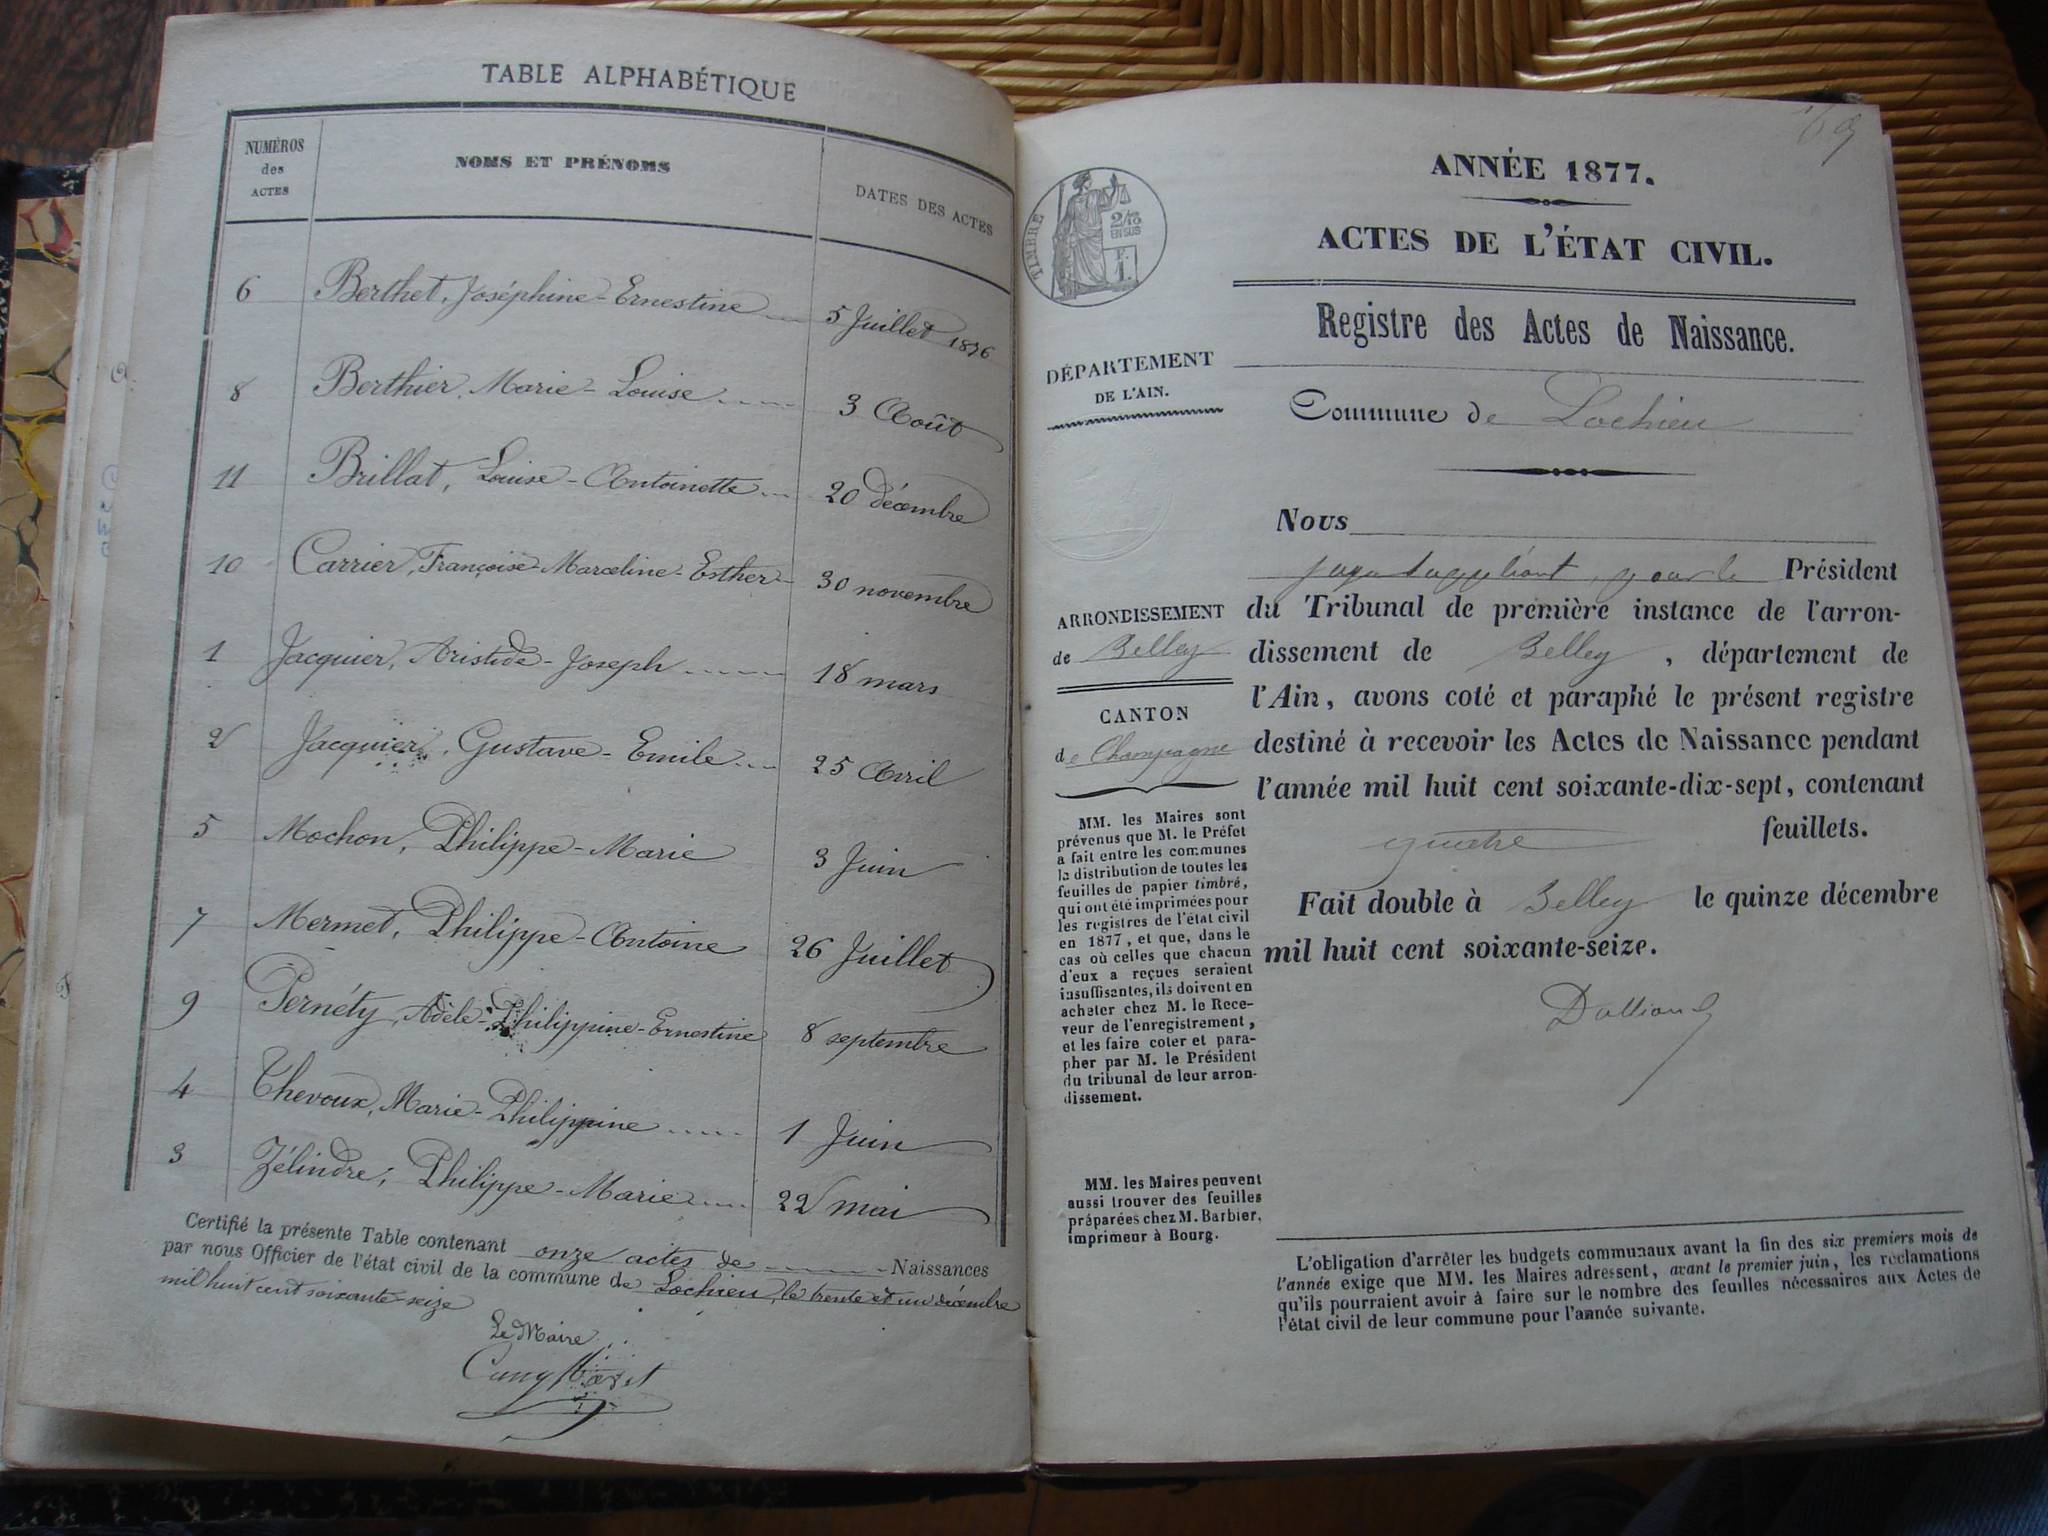 TABLE ALPHABÉTIQUE
NUMÉROS des ACTES NOMS ET PRÉNOMS DATES DES ACTES
6 Berthet, Joséphine-Ernestine 5 Juillet 1876
8 Berthier, Marie-Louise 3 Août
11 Brillat, Louise-Antoinette 20 décembre
10 Carrier, Françoise-Marceline-Esther 30 novembre
1 Jacquier, Aristide-Joseph 18 mars
2 Jacquier, Gustave-Emile 25 Avril
5 Mochon, Philippe-Marie 3 Juin
7 Mermet, Philippe-Antoine 26 Juillet
9 Pernéty, Adèle-Philippine-Ernestine 8 septembre
4 Thevoux, Marie-Philippine 1 Juin
3 Zélindre, Philippe-Marie 22 mai
Certifié la présente Table contenant onze actes de Naissances
par nous Officier de l'état civil de la commune de Lochieu, le trente et un décembre
mil huit cent soixante-seize
Le Maire
TIMBRE
2/10
EN SUS
F.
1.
ANNÉE 1877.
ACTES DE L'ÉTAT CIVIL.
Registre des Actes de Naissance.
DÉPARTEMENT
DE L'AIN.
Commune de Lochieu
Nous
suppléant, pour le Président
ARRONDISSEMENT
de Belley
du Tribunal de première instance de l'arron-
dissement de Belley, département de
l'Ain, avons coté et paraphé le présent registre
destiné à recevoir les Actes de Naissance pendant
l'année mil huit cent soixante-dix-sept, contenant
quatre feuillets.
Fait double à Belley le quinze décembre
mil huit cent soixante-seize.
CANTON
de Champagne
MM. les Maires sont
prévenus que M. le Préfet
a fait entre les communes
la distribution de toutes les
feuilles de papier timbré,
qui ont été imprimées pour
les registres de l'état civil
en 1877, et que, dans le
cas où celles que chacun
d'eux a reçues seraient
insuffisantes, ils doivent en
acheter chez M. le Rece-
veur de l'enregistrement,
et les faire coter et para-
pher par M. le Président
du tribunal de leur arron-
dissement.
MM. les Maires peuvent
aussi trouver des feuilles
préparées chez M. Barbier,
imprimeur à Bourg.
L'obligation d'arrêter les budgets communaux avant la fin des six premiers mois de
l'année exige que MM. les Maires adressent, avant le premier juin, les réclamations
qu'ils pourraient avoir à faire sur le nombre des feuilles nécessaires aux Actes de
l'état civil de leur commune pour l'année suivante.